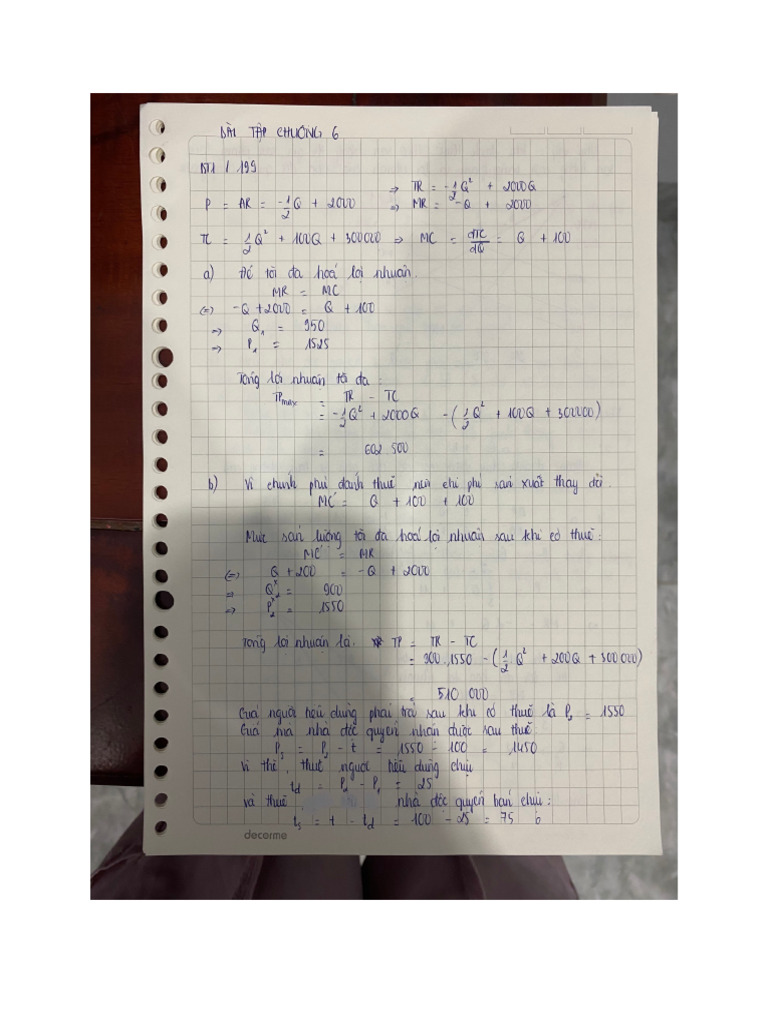 BÀI TẬP CHƯƠNG 6
BT1 / 199
⇒ TR = -1/2 Q² + 2000Q
P = AR = -1/2 Q + 2000 ⇒ MR = -Q + 2000
TC = 1/2 Q² + 100Q + 300000 ⇒ MC = dTC/dQ = Q + 100
a) Để tối đa hoá lợi nhuận.
MR = MC
(=) -Q + 2000 = Q + 100
⇒ Q₁ = 950
⇒ P₁ = 1525
Tổng lợi nhuận tối đa :
TPmax = TR - TC
= -1/2 Q² + 2000Q - (1/2 Q² + 100Q + 300000)
= 602 500
b) Vì chính phủ đánh thuế nên chi phí sản xuất thay đổi.
MC' = Q + 100 + 100
Mức sản lượng tối đa hoá lợi nhuận sau khi có thuế :
MC' = MR
(=) Q + 200 = -Q + 2000
⇒ Q₂* = 900
⇒ P₂* = 1550
Tổng lợi nhuận là. TP = TR - TC
= 900.1550 - (1/2 Q² + 200Q + 300 000)
= 510 000
Giá người tiêu dùng phải trả sau khi có thuế là P₂ = 1550
Giá mà nhà độc quyền nhận được sau thuế
P₃ = P₂ - t = 1550 - 100 = 1450
Vì thế, thuế người tiêu dùng chịu
td = P₂ - P₁ = 25
và thuế nhà độc quyền bán chịu :
ts = t - td = 100 - 25 = 75
decorme